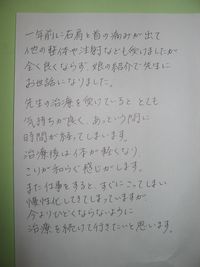 一年前に右肩と首の痛みが出て
他の整体や注射なども受けましたが
全く良くならず、娘の紹介で先生に
お世話になりました。
先生の治療を受けていると とても
気持ちが良く、あっという間に
時間が経ってしまいます。
治療後は体が軽くなり
こりが和らぐ感じがします。
また仕事をすると、すぐにこってしまい
慢性化してきてしまっていますが
今よりひどくならないように
治療を続けて行きたいと思います。